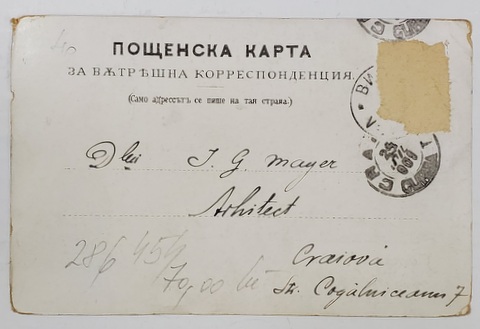 ПОЩЕНСКА КАРТА
ЗА ВѪТРѢШНА КОРРЕСПОНДЕНЦИЯ.
(Само адрессътъ се пише на тая страна.)
Dlui J. G. Mayer
Arhitect
Craiova
Str. Cogălniceanu 7
286 454
70,00 lei
ВИ
CRAIOVA